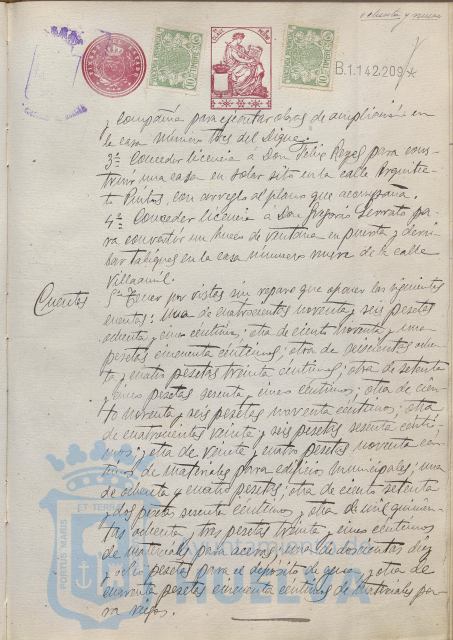 ochenta y nueve
B.1.142.209 *
y compañía para ejecutar obras de ampliación en
la casa número tres del Dique.
3º Conceder licencia a Don Felix Reyes para cons-
truir una casa en solar sito en la calle Arquitec-
to Pintos, con arreglo al plano que acompaña.
4º Conceder licencia a Don Gregorio Serrato pa-
ra convertir un hueco de ventana en puerta y derri-
bar tabiques en la casa número nueve de la calle
Villaamil.
Cuentas
5º Tener por vistas sin reparo que oponer las siguientes
cuentas: Una de cuatrocientos noventa y seis pesetas
ochenta y cinco céntimos; otra de ciento noventa y una
pesetas cincuenta céntimos; otra de seiscientas ochen-
ta y cuatro pesetas treinta céntimos; otra de setenta
y cinco pesetas sesenta y cinco céntimos; otra de cien-
to noventa y seis pesetas noventa céntimos; otra
de cuatrocientos veinte y seis pesetas sesenta cénti-
mos; otra de veinte y cuatro pesetas noventa cén-
timos de materiales para edificios municipales; una
de ochenta y cuatro pesetas; otra de ciento setenta
y dos pesetas sesenta céntimos y otra de mil quinien-
tas ochenta y tres pesetas treinta y cinco céntimos
de materiales para aceras; una de doscientas diez
y ocho pesetas para el depósito de agua y otra de
cuarenta pesetas cincuenta céntimos de materiales pa-
ra riegos.
PORTUS MARIS
ET TERRE
HUELVA